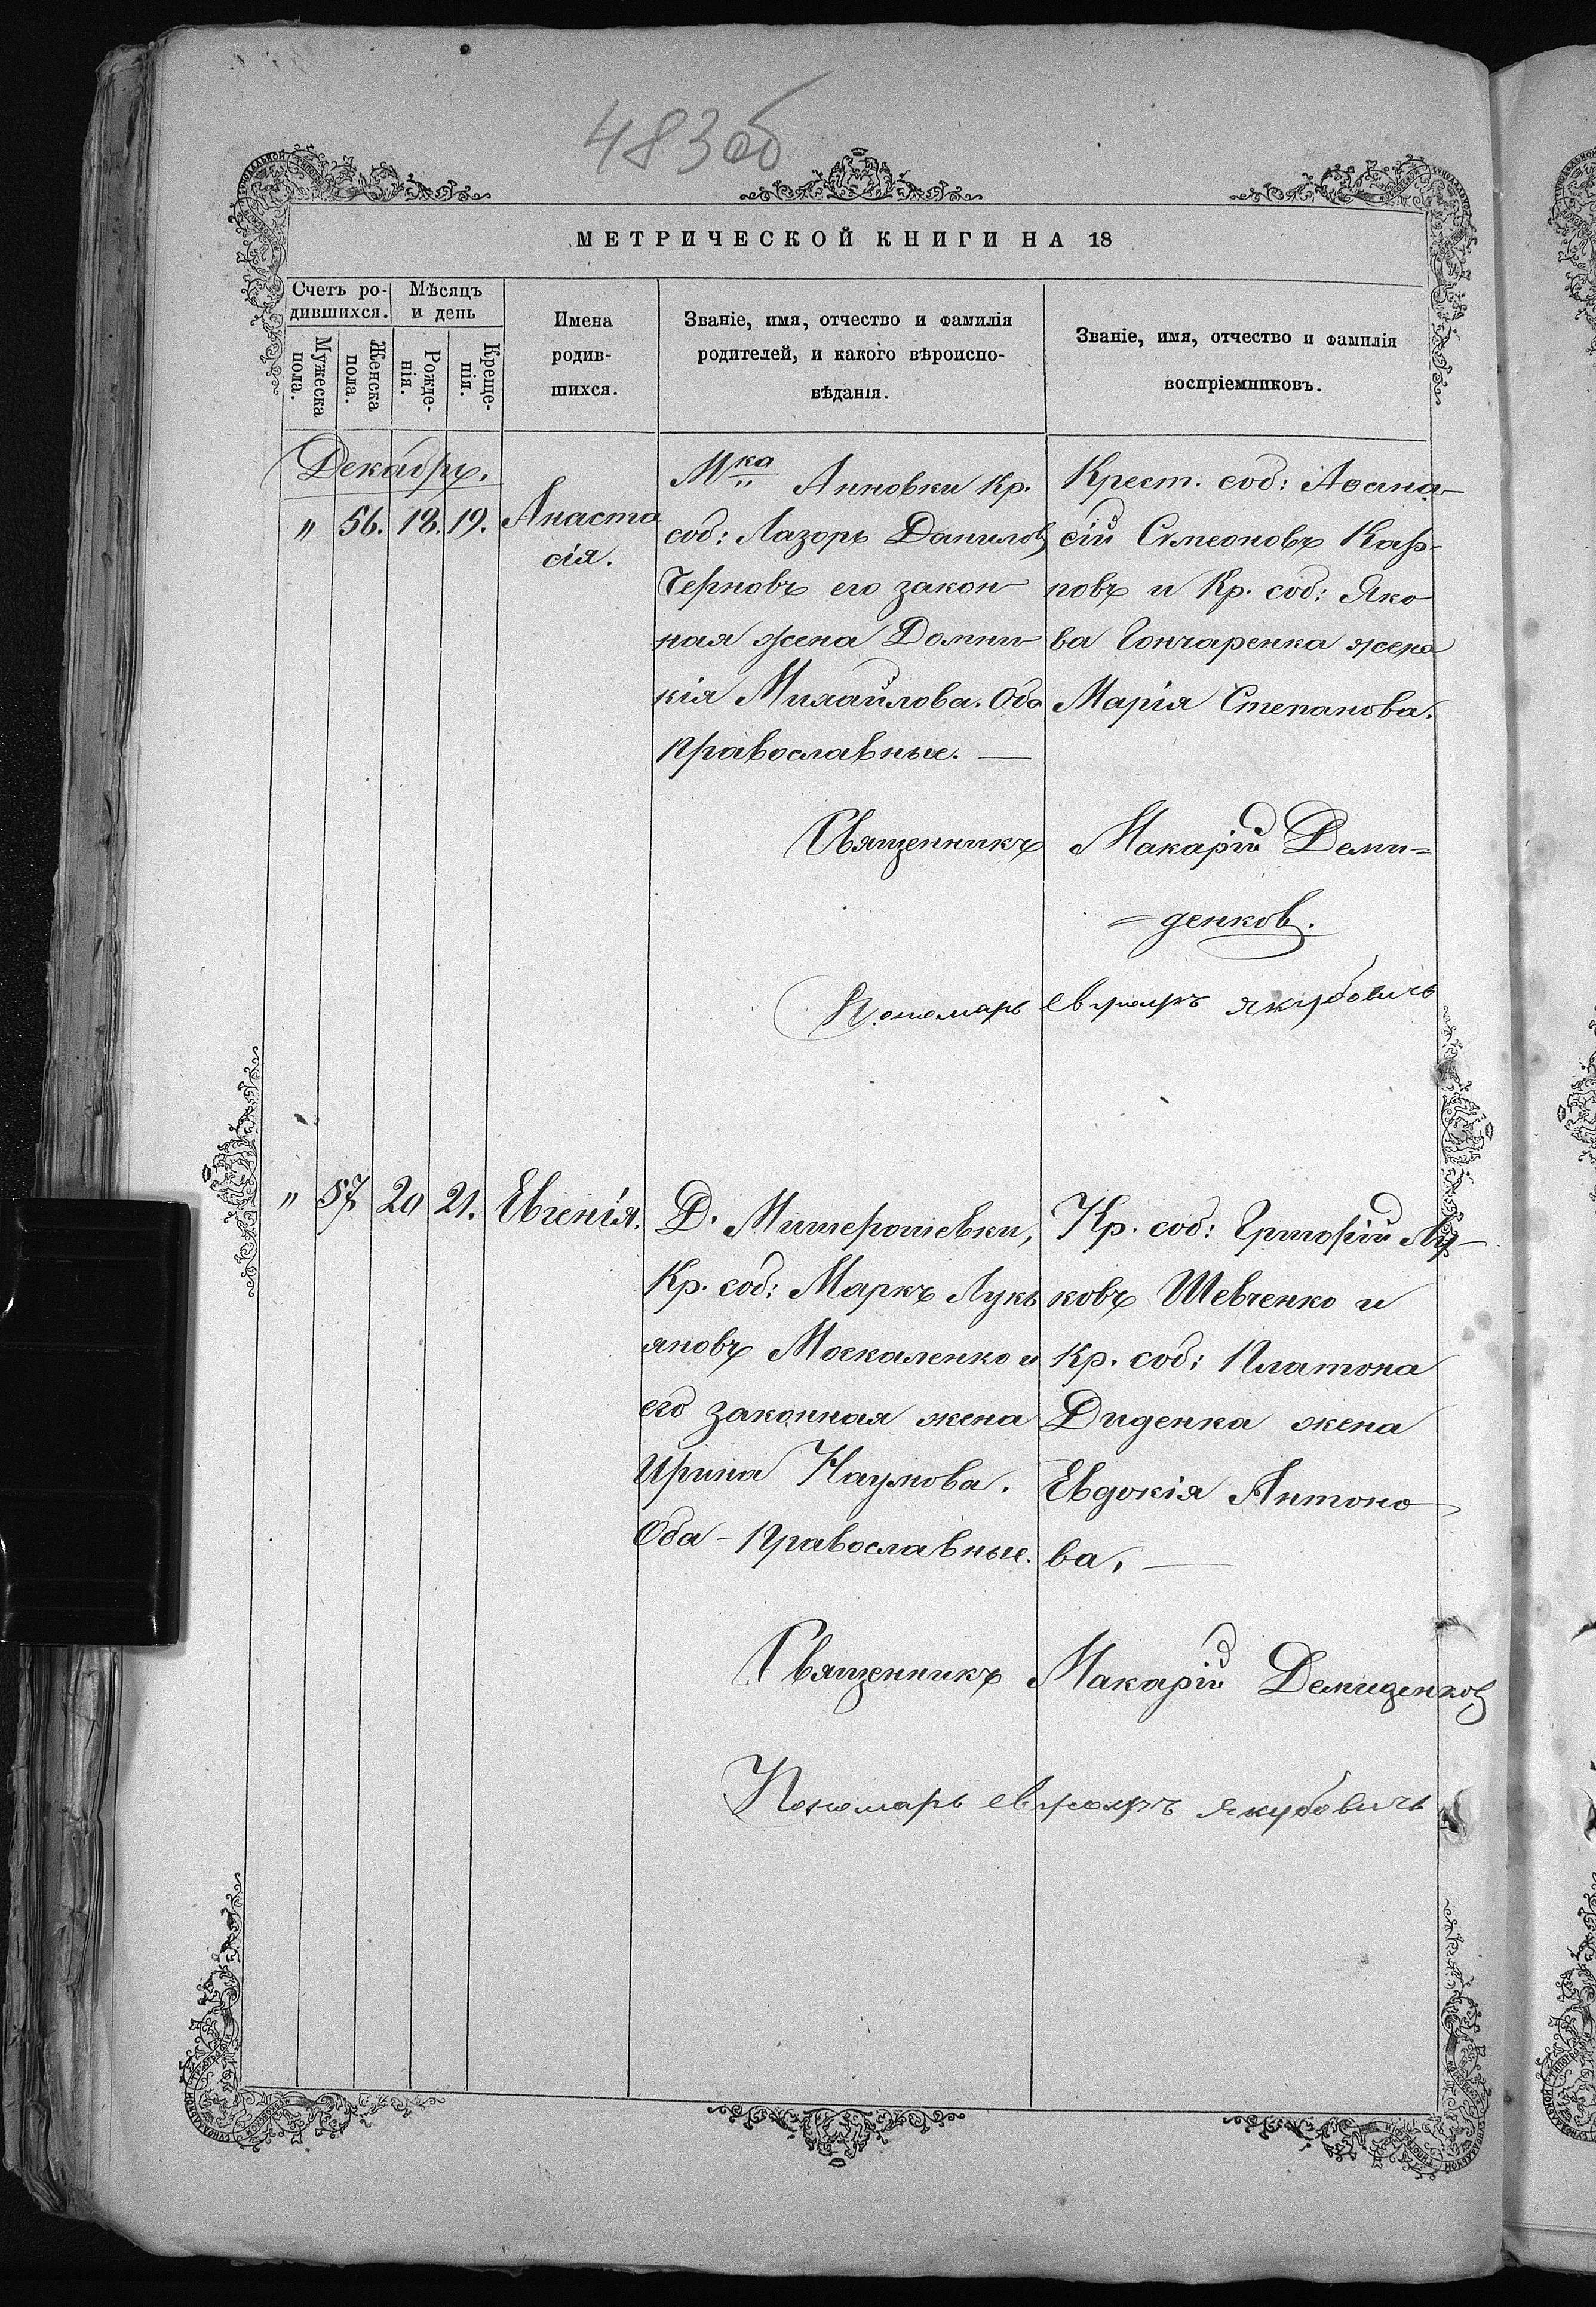 483об
МЕТРИЧЕСКОЙ КНИГИ НА 18
Счетъ ро-
дившихся.
Мѣсяцъ
и день
Мужеска
пола.
Женска
пола.
Рожде-
нія.
Креще-
нія.
Имена
родив-
шихся.
Званіе, имя, отчество и фамилія
родителей, и какого вѣроиспо-
вѣданія.
Званіе, имя, отчество и фамилія
воспріемниковъ.
Декабрь.
" 56. 18. 19.
Анаста
сія.
Мка Анновки Кр.
соб: Лазорь Данилов
Черновъ его закон
ная жена Домни
кія Михайлова. Оба
Православные. —
Крест. соб: Аѳана-
сій Сѵмеоновъ Кар-
повъ и Кр. соб: Яко
ва Гончаренка жена
Марія Степанова.
Священникъ Макарій Деми=
=денков.
Пономарь Якубовичъ
" 57 20 21. Евгенія.
Д. Мишерошевки,
Кр. соб: Маркъ Лукь
яновъ Москаленко и
его законная жена
Ирина Наумова.
Оба - Православные.
Кр. соб: Григорій Лу-
ковъ Шевченко и
Кр. соб: Платона
Диденка жена
Евдокія Антоно
ва. —
Священникъ Макарій Демиденков
Пономарь Якубовичъ